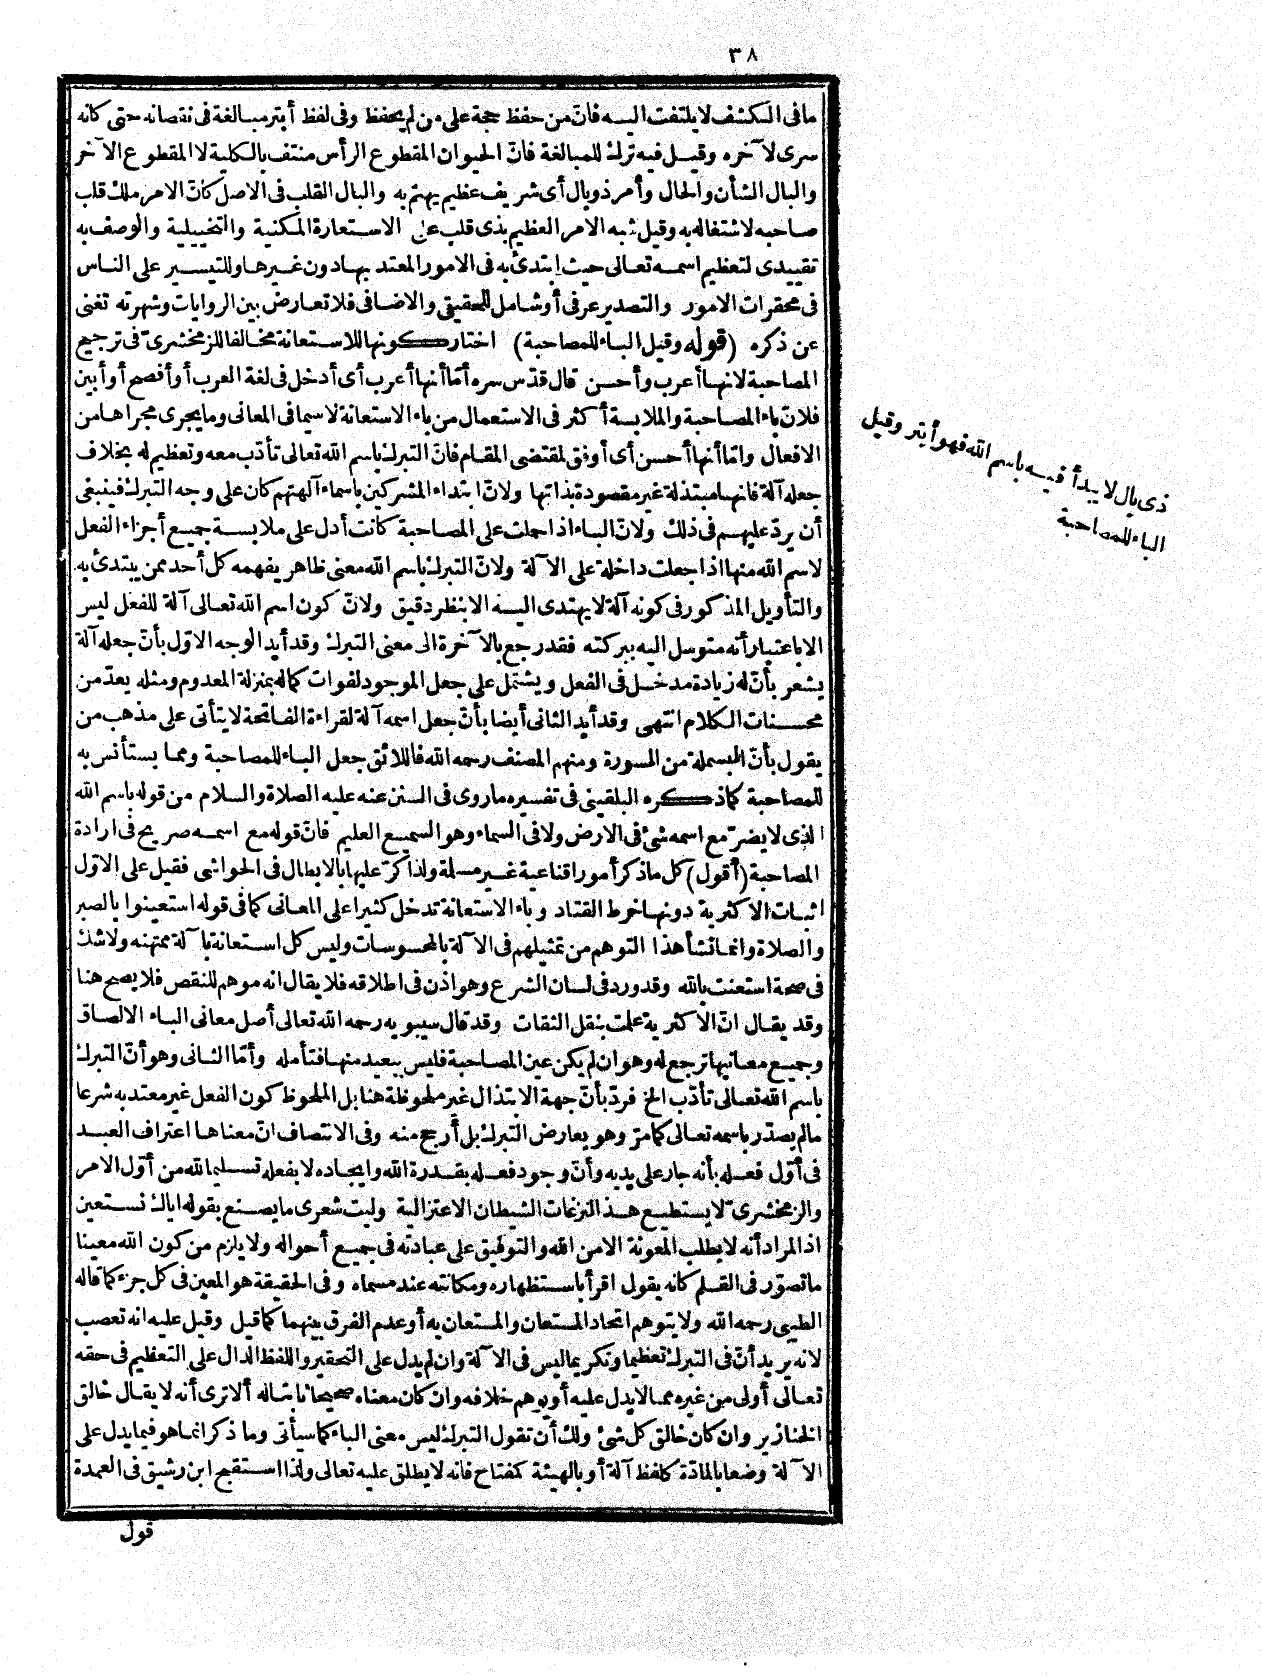 ٣٨
ما فى الكشف لا يلتفت اليه فانّ من حفظ حجة على من لم يحفظ وفى لفظ أبتر مبالغة فى نقصانه حتى كانه
سرى لآخره وقيل فيه ترك للمبالغة فانّ الحيوان المقطوع الرأس منتف بالكلية لا المقطوع الآخر
والبال الشأن والحال وأمر ذوبال أى شريف عظيم يهتم به والبال القلب فى الاصل كانّ الامر ملك قلب
صاحبه لاشتغاله به وقيل شبه الامر العظيم بذى قلب على الاستعارة المكنية والتخييلية والوصف به
تقييدى لتعظيم اسمه تعالى حيث ابتدئ به فى الامور المعتد بها دون غيرها وللتيسير على الناس
فى محقرات الامور والتصدير عرفى أو شامل للحقيقى والاضافى فلا تعارض بين الروايات وشهرته تغنى
عن ذكره (قوله وقيل الباء للمصاحبة) اختار كونها للاستعانة مخالفا للزمخشرىّ فى ترجيح
المصاحبة لانها أعرب وأحسن قال قدّس سره أمّا أنها أعرب أى أدخل فى لغة العرب أو أفصح أو أبين
فلانّ باء المصاحبة والملابسة أكثر فى الاستعمال من باء الاستعانة لاسيما فى المعانى وما يجرى مجراها من
الافعال وامّا أنها أحسن أى أوفق لمقتضى المقام فانّ التبرك باسم الله تعالى تأدّب معه وتعظيم له بخلاف
جعله آلة فانها مبتذلة غير مقصودة بذاتها ولانّ ابتداء المشركين باسماء آلهتهم كان على وجه التبرك فينبغى
أن يردّ عليهم فى ذلك ولانّ الباء اذا حملت على المصاحبة كانت أدل على ملابسة جميع أجزاء الفعل
لاسم الله منها اذا جعلت داخلة على الآلة ولانّ التبرك باسم الله معنى ظاهر يفهمه كل أحد ممن يبتدئ به
والتأويل المذكور فى كونه آلة لا يهتدى اليه الا بنظر دقيق ولانّ كون اسم الله تعالى آلة للفعل ليس
الا باعتبار أنه متوسل اليه ببركته فقد رجع بالآخرة الى معنى التبرك وقد أيد الوجه الاوّل بأنّ جعله آلة
يشعر بأنّ له زيادة مدخل فى الفعل ويشتمل على جعل الموجود لفوات كماله بمنزلة المعدوم ومثله يعدّ من
محسنات الكلام انتهى وقد أيد الثانى أيضا بأنّ جعل اسمه آلة لقراءة الفاتحة لا يتأتى على مذهب من
يقول بأنّ البسملة من السورة ومنهم المصنف رحمه الله فاللائق جعل الباء للمصاحبة ومما يستأنس به
للمصاحبة كما ذكره البلقينى فى تفسيره ما روى فى السنن عنه عليه الصلاة والسلام من قوله باسم الله
الذى لا يضرّ مع اسمه شئ فى الارض ولا فى السماء وهو السميع العليم فانّ قوله مع اسمه صريح فى ارادة
المصاحبة (أقول) كل ما ذكر أمور اقناعية غير مسلمة ولذا كرّ عليها بالابطال فى الحواشى فقيل على الاوّل
اثبات الاكثرية دونها خرط القتاد وباء الاستعانة تدخل كثيرا على المعانى كما فى قوله استعينوا بالصبر
والصلاة وانما نشأ هذا التوهم من تمثيلهم فى الآلة بالمحسوسات وليس كل استعانة بآلة ممتهنه ولا شك
فى صحة استعنت بالله وقد ورد فى لسان الشرع وهو اذن فى اطلاقه فلا يقال انه موهم للنقص فلا يصح هنا
وقد يقال انّ الاكثرية علمت بنقل الثقات وقد قال سيبويه رحمه الله تعالى أصل معانى الباء الالصاق
وجميع معانيها ترجع له وهو ان لم يكن عين المصاحبة فليس ببعيد منها فتأمله وأمّا الثانى وهو أنّ التبرك
باسم الله تعالى تأدّب الخ فردّ بأنّ جهة الابتذال غير ملحوظة هنا بل الملحوظ كون الفعل غير معتد به شرعا
ما لم يصدّر باسمه تعالى كما مرّ وهو يعارض التبرك بل أرجح منه وفى الانتصاف انّ معناها اعتراف العبد
فى أوّل فعله بأنه جار على يديه وأنّ وجود فعله بقدرة الله وايجاده لا بفعله تسليما لله من أوّل الامر
والزمخشرىّ لا يستطيع هذا لنزغات الشيطان الاعتزالية وليت شعرى ما يصنع بقوله اياك نستعين
اذ المراد أنه لا يطلب المعونة الا من الله والتوفيق على عبادته فى جميع أحواله ولا يلزم من كون الله معينا
ما تصوّر فى القلم كانه يقول اقرأ باستظهاره ومكانته عند مسماه وفى الحقيقة هو المعين فى كل جزء كما قاله
الطيبى رحمه الله ولا يتوهم اتحاد المستعان والمستعان به أو عدم الفرق بينهما كما قيل وقيل عليه انه تعصب
لانه يريد أنّ فى التبرك تعظيما وتكريما ليس فى الآلة وان لم يدل على التحقير واللفظ الدال على التعظيم فى حقه
تعالى أولى من غيره مما لا يدل عليه أو يوهم خلافه وان كان معناه صحيحا ثابتا له ألا ترى أنه لا يقال خالق
الخنازير وان كان خالق كل شئ ولك أن تقول التبرك ليس معنى الباء كما سيأتى وما ذكر انما هو فيما يدل على
الآلة وضعا بالمادّة كلفظ آلة أو بالهيئة كمفتاح فانه لا يطلق عليه تعالى ولذا استقبح ابن رشيق فى العمدة
قول
ذى بال لا يبدأ فيه باسم الله فهو أبتر وقيل
الباء للمصاحبة